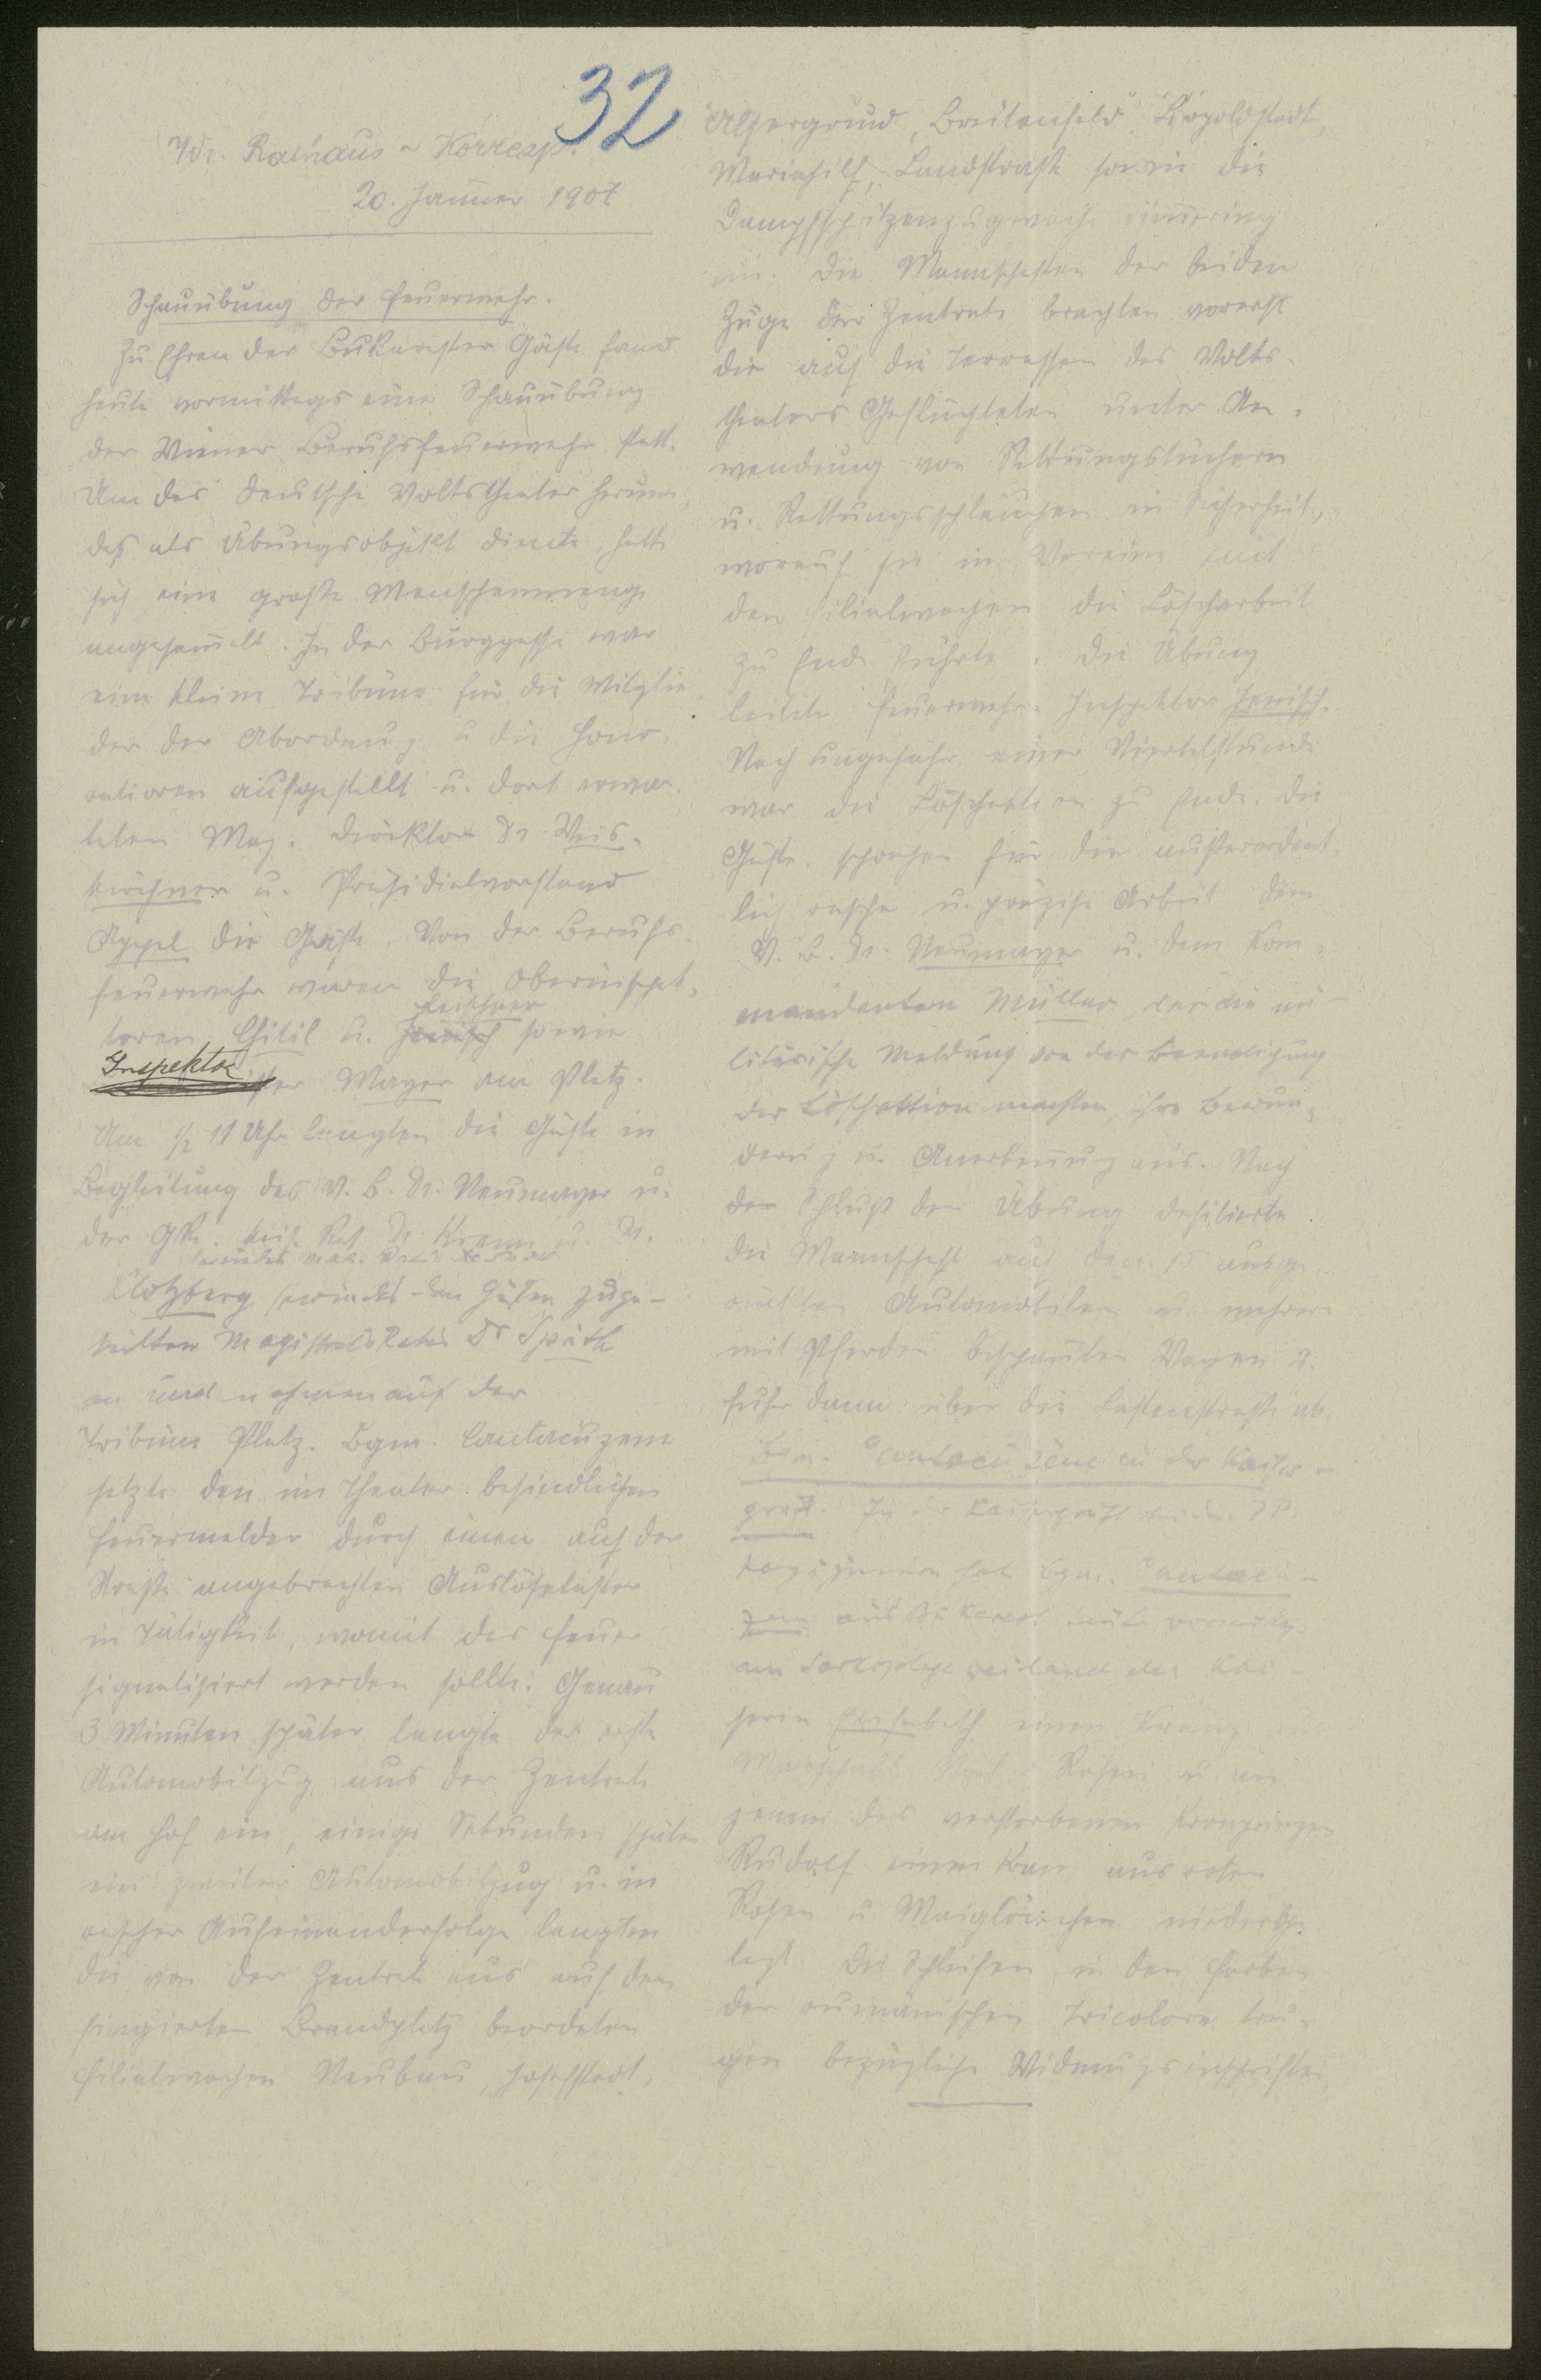 32
Wr. Rathaus-Korresp.
20. Jänner 1907
Schauübung der Feuerwehr.
Zu Ehren der Bukarester Gäste fand
heute vormittags eine Schauübung
der Wiener Berufsfeuerwehr statt.
Um das Deutsche Volkstheater herum,
das als Übungsobjekt diente, hatte
sich eine große Menschenmenge
angesammelt. In der Burggasse war
eine kleine Tribüne für die Mitglie-
der der Abordnung u. die Hono-
ratioren aufgestellt u. dort erwar-
teten Mag. Direktor Dr. Weis-
kirchner u. Präsidialvorstand
Appel die Gäste. Von der Berufs-
feuerwehr waren die Oberinspek-
toren Chitil u. Jenisch sowie
Inspektor Mayer am Platz.
Um ½ 11 Uhr langten die Gäste in
Begleitung des V. B. Dr. Neumayer u.
der GRe. kais. Rat Dr. Krenn u. Dr.
Klotzberg sowie des den Gästen zuge-
teilten Magistratsrates Dr Späth
an und nahmen auf der
Tribüne Platz. Bgm. Cantacuzene
setzte den im Theater befindlichen
Feuermelder durch einen auf der
Straße angebrachten Auslösetaster
in Tätigkeit, womit das Feuer
signalisiert werden sollte. Genau
3 Minuten später langte der erste
Automobilzug aus der Zentrale
am Hof ein, einige Sekunden später
ein zweiter Automobilzug u. in
rascher Aufeinanderfolge langten
die von der Zentrale aus auf den
fingierten Brandplatz beorderten
Filialwachen Neubau, Josefstadt,
Alsergrund, Breitenfeld, Leopoldstadt,
Mariahilf, Landstraße sowie die
Dampfspritzenzugwache Simmering
ein. Die Mannschaften der beiden
Züge der Zentrale brachten vorerst
die auf die Terrassen des Volks-
theaters Geflüchteten unter An-
wendung von Rettungstüchern
u. Rettungsschläuchen in Sicherheit,
worauf sie im Vereine mit
den Filialwachen die Löscharbeit
zu Ende führte. Die Übung
leitete Feuerwehr-Inspektor Jenisch.
Nach ungefähr einer Viertelstunde
war die Löschaktion zu Ende. Die
Gäste sprachen für die außerordent-
lich rasche u. präzise Arbeit dem
V. B. Dr. Neumayer u. dem Kom-
mandanten Müller, der die mi-
litärische Meldung von der Beendigung
der Löschaktion machten, ihre Bewun-
derung u. Anerkennung aus. Nach
dem Schluß der Übung defilierte
die Mannschaft auf den 15 ausge-
rückten Automobilen u. mehrere
mit Pferden bespannten Wagen u.
fuhr dann über die Lastenstraße ab.
Bgm. Cantacuzene in der Kaiser-
gruft. In der Kaisergruft bei den PP.
Kapuzinern hat Bgm. Cantacu-
zene aus Bukarest heute vormittags
am Sarkophage weiland der Kai-
serin Elisabeth einen Kranz
Rosen u. an
jenem des verstorbenen Kronprinzen
Rudolf einen Kranz aus roten
Rosen u. Maiglöckchen niederge-
legt. Die Schleifen in den Farben
der rumänischen Tricolore tru-
gen bezügliche Widmungsinschriften.